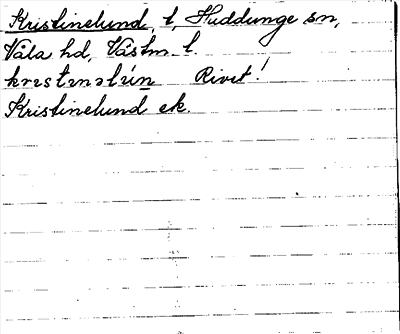 Kristinelund, t, Huddunge sn,
Våla hd, Västm. l.
Rivet!
Kristinelund ek.